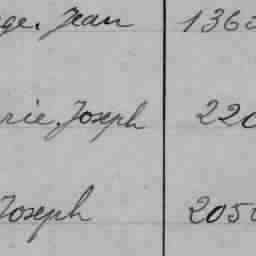 ge, Jean 1362
rie, Joseph 220
Joseph 2050